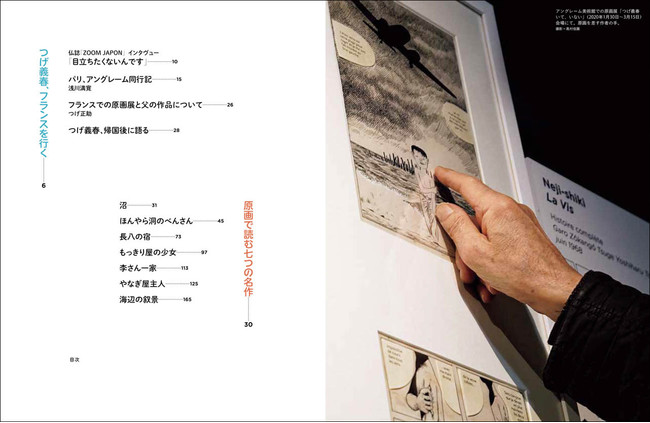 つげ義春、フランスを行く
6
仏誌「ZOOM JAPON」インタヴュー
「目立ちたくないんです」 10
パリ、アングレーム同行記 15
浅川満寛
フランスでの原画展と父の作品について 26
つげ正助
つげ義春、帰国後に語る 28
原画で読む七つの名作
30
沼 31
ほんやら洞のべんさん 45
長八の宿 73
もっきり屋の少女 97
李さん一家 113
やなぎ屋主人 125
海辺の叙景 165
目次
アングレーム美術館での原画展「つげ義春
いて、いない」(2020年1月30日―3月15日)
会場にて、原画を指す作者の手。
Neji-shiki
La Vis
Histoire complète
Garo Zōkangō Tsuge Yoshiharu
juin 1968